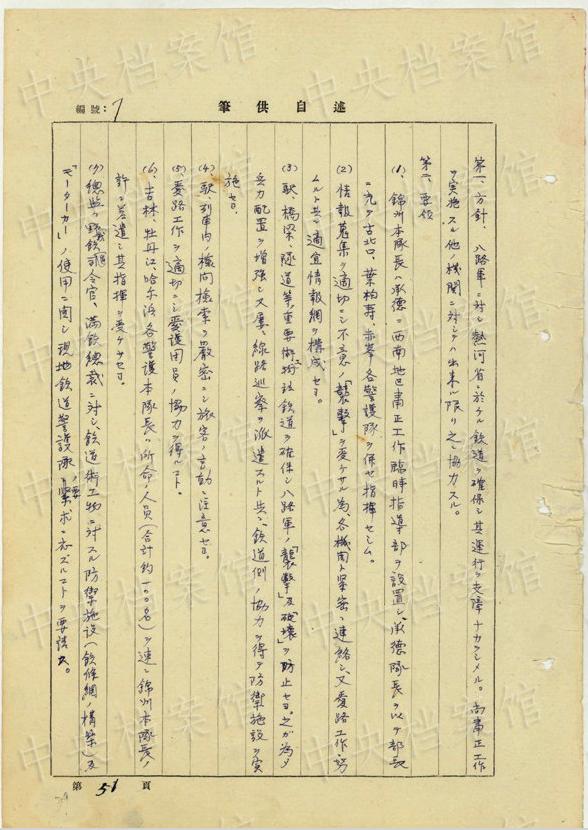 編號：7
述自供筆
第一、方針、八路軍ニ対シ熱河省ニ於ケル鉄道ヲ確保シ其運行ヲ支障ナカラシメル。尚粛正工作
ヲ実施スル他ノ機関ニ対シテハ出来ル限リ之ニ協力スル。
第二、要領
(1) 錦州本隊長ハ承徳ニ「西南地区粛正工作臨時指導部」ヲ設置シ、承徳隊長ヲ以テ部長
ニ充テ古北口、葉柏寿、赤峯各警護隊ヲ併セ指揮セシム。
(2) 情報蒐集ヲ適切ニシ不意ノ「襲撃」ヲ受ケザル為、各機関ト緊密ニ連絡シ、又愛路工作ニ努
ムルト共ニ適宜情報網ヲ構成セヨ。
(3) 駅、橋梁、隧道等ノ重要術工物並鉄道ヲ確保シ八路軍ノ「襲撃」及「破壊」ヲ防止セヨ。之ガ為メ
兵力配置ヲ増強シ又屡々線路巡察ヲ派遣スルト共ニ、鉄道側ノ協力ヲ得テ防禦施設ヲ実
施セヨ。
(4) 駅、列車内ノ検問検索ヲ厳密ニシ旅客ノ言動ニ注意セヨ。
(5) 愛路工作ヲ適切ニシ愛護団員ノ協力ヲ得ルコト。
(6) 吉林、牡丹江、哈尓浜各警護本隊長ハ所命ノ人員（合計約一〇〇名）ヲ速ニ錦州本隊長ノ
許ニ差遣シ其指揮ヲ受ケサセヨ。
(7) 総監ハ野鉄司令官、満鉄総裁ニ対シ、鉄道術工物ニ対スル防禦施設（鉄條網ノ構築）及
「モーターカー」ノ使用ニ関シ現地鉄道警護隊ノ要求ニ応ズルコトヲ要請ス。
第 51 頁
中央档案馆